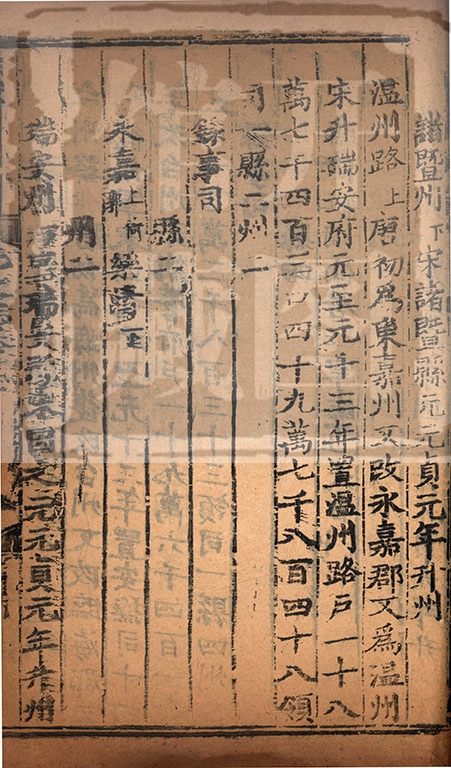 諸暨州下宋諸暨縣元元貞元年升州
温州路上唐初為東嘉州又改永嘉郡又為温州
宋升瑞安府元至元十三年置温州路戶一十八
萬七千四百口四十九萬七千八百四十八領
司一縣二州二
録事司
縣二
永嘉上附郭樂清上
州二
瑞安州元元貞元年升州